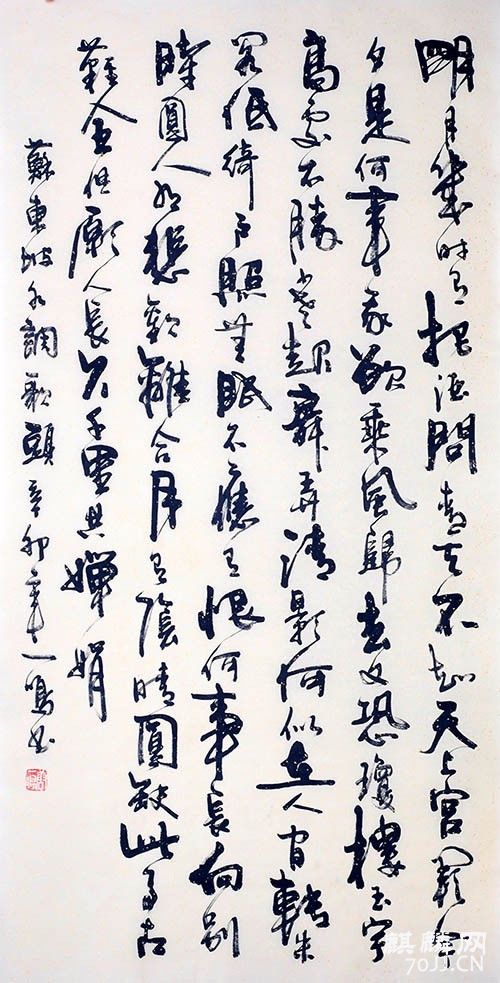 明月幾時有把酒問青天不知天上宮闕今
夕是何年我欲乘風歸去又恐瓊樓玉宇
高處不勝寒起舞弄清影何似在人間轉朱
閣低綺戶照無眠不應有恨何事長向別
時圓人有悲歡離合月有陰晴圓缺此事古
難全但願人長久千里共嬋娟
蘇東坡水調歌頭辛卯年一鳴书
麒麟网
70JJ.CN